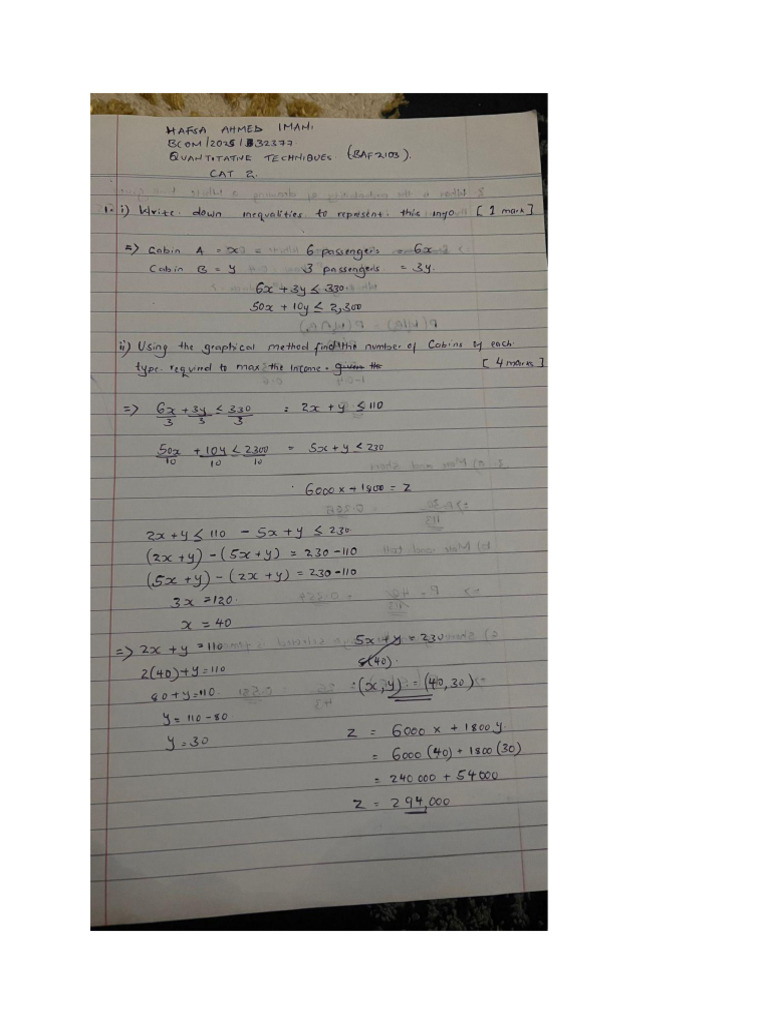 HAFSA AHMED IMANI
BCOM/2025/32377
QUANTITATIVE TECHNIQUES (BAF2103).
CAT 2.
1. i) Write down inequalities to represent this info [1 mark]
=> Cabin A = x = 6 passengers = 6x
Cabin B = y 3 passengers = 3y.
6x + 3y ≤ 330
50x + 10y ≤ 2,300
ii) Using the graphical method find the number of Cabins of each
type required to max the income. [4 marks]
=> 6x/3 + 3y/3 ≤ 330/3 = 2x + y ≤ 110
50x/10 + 10y/10 ≤ 2300/10 = 5x + y ≤ 230
6000x + 1800 = Z
2x + y ≤ 110 - 5x + y ≤ 230
(2x + y) - (5x + y) = 230 - 110
(5x + y) - (2x + y) = 230 - 110
3x = 120.
x = 40
=> 2x + y = 110
2(40) + y = 110
80 + y = 110.
y = 110 - 80
y = 30
5x + y = 230
(40).
: (x, y) := (40, 30)
Z = 6000x + 1800y.
= 6000(40) + 1800(30)
= 240 000 + 54000
Z = 294,000